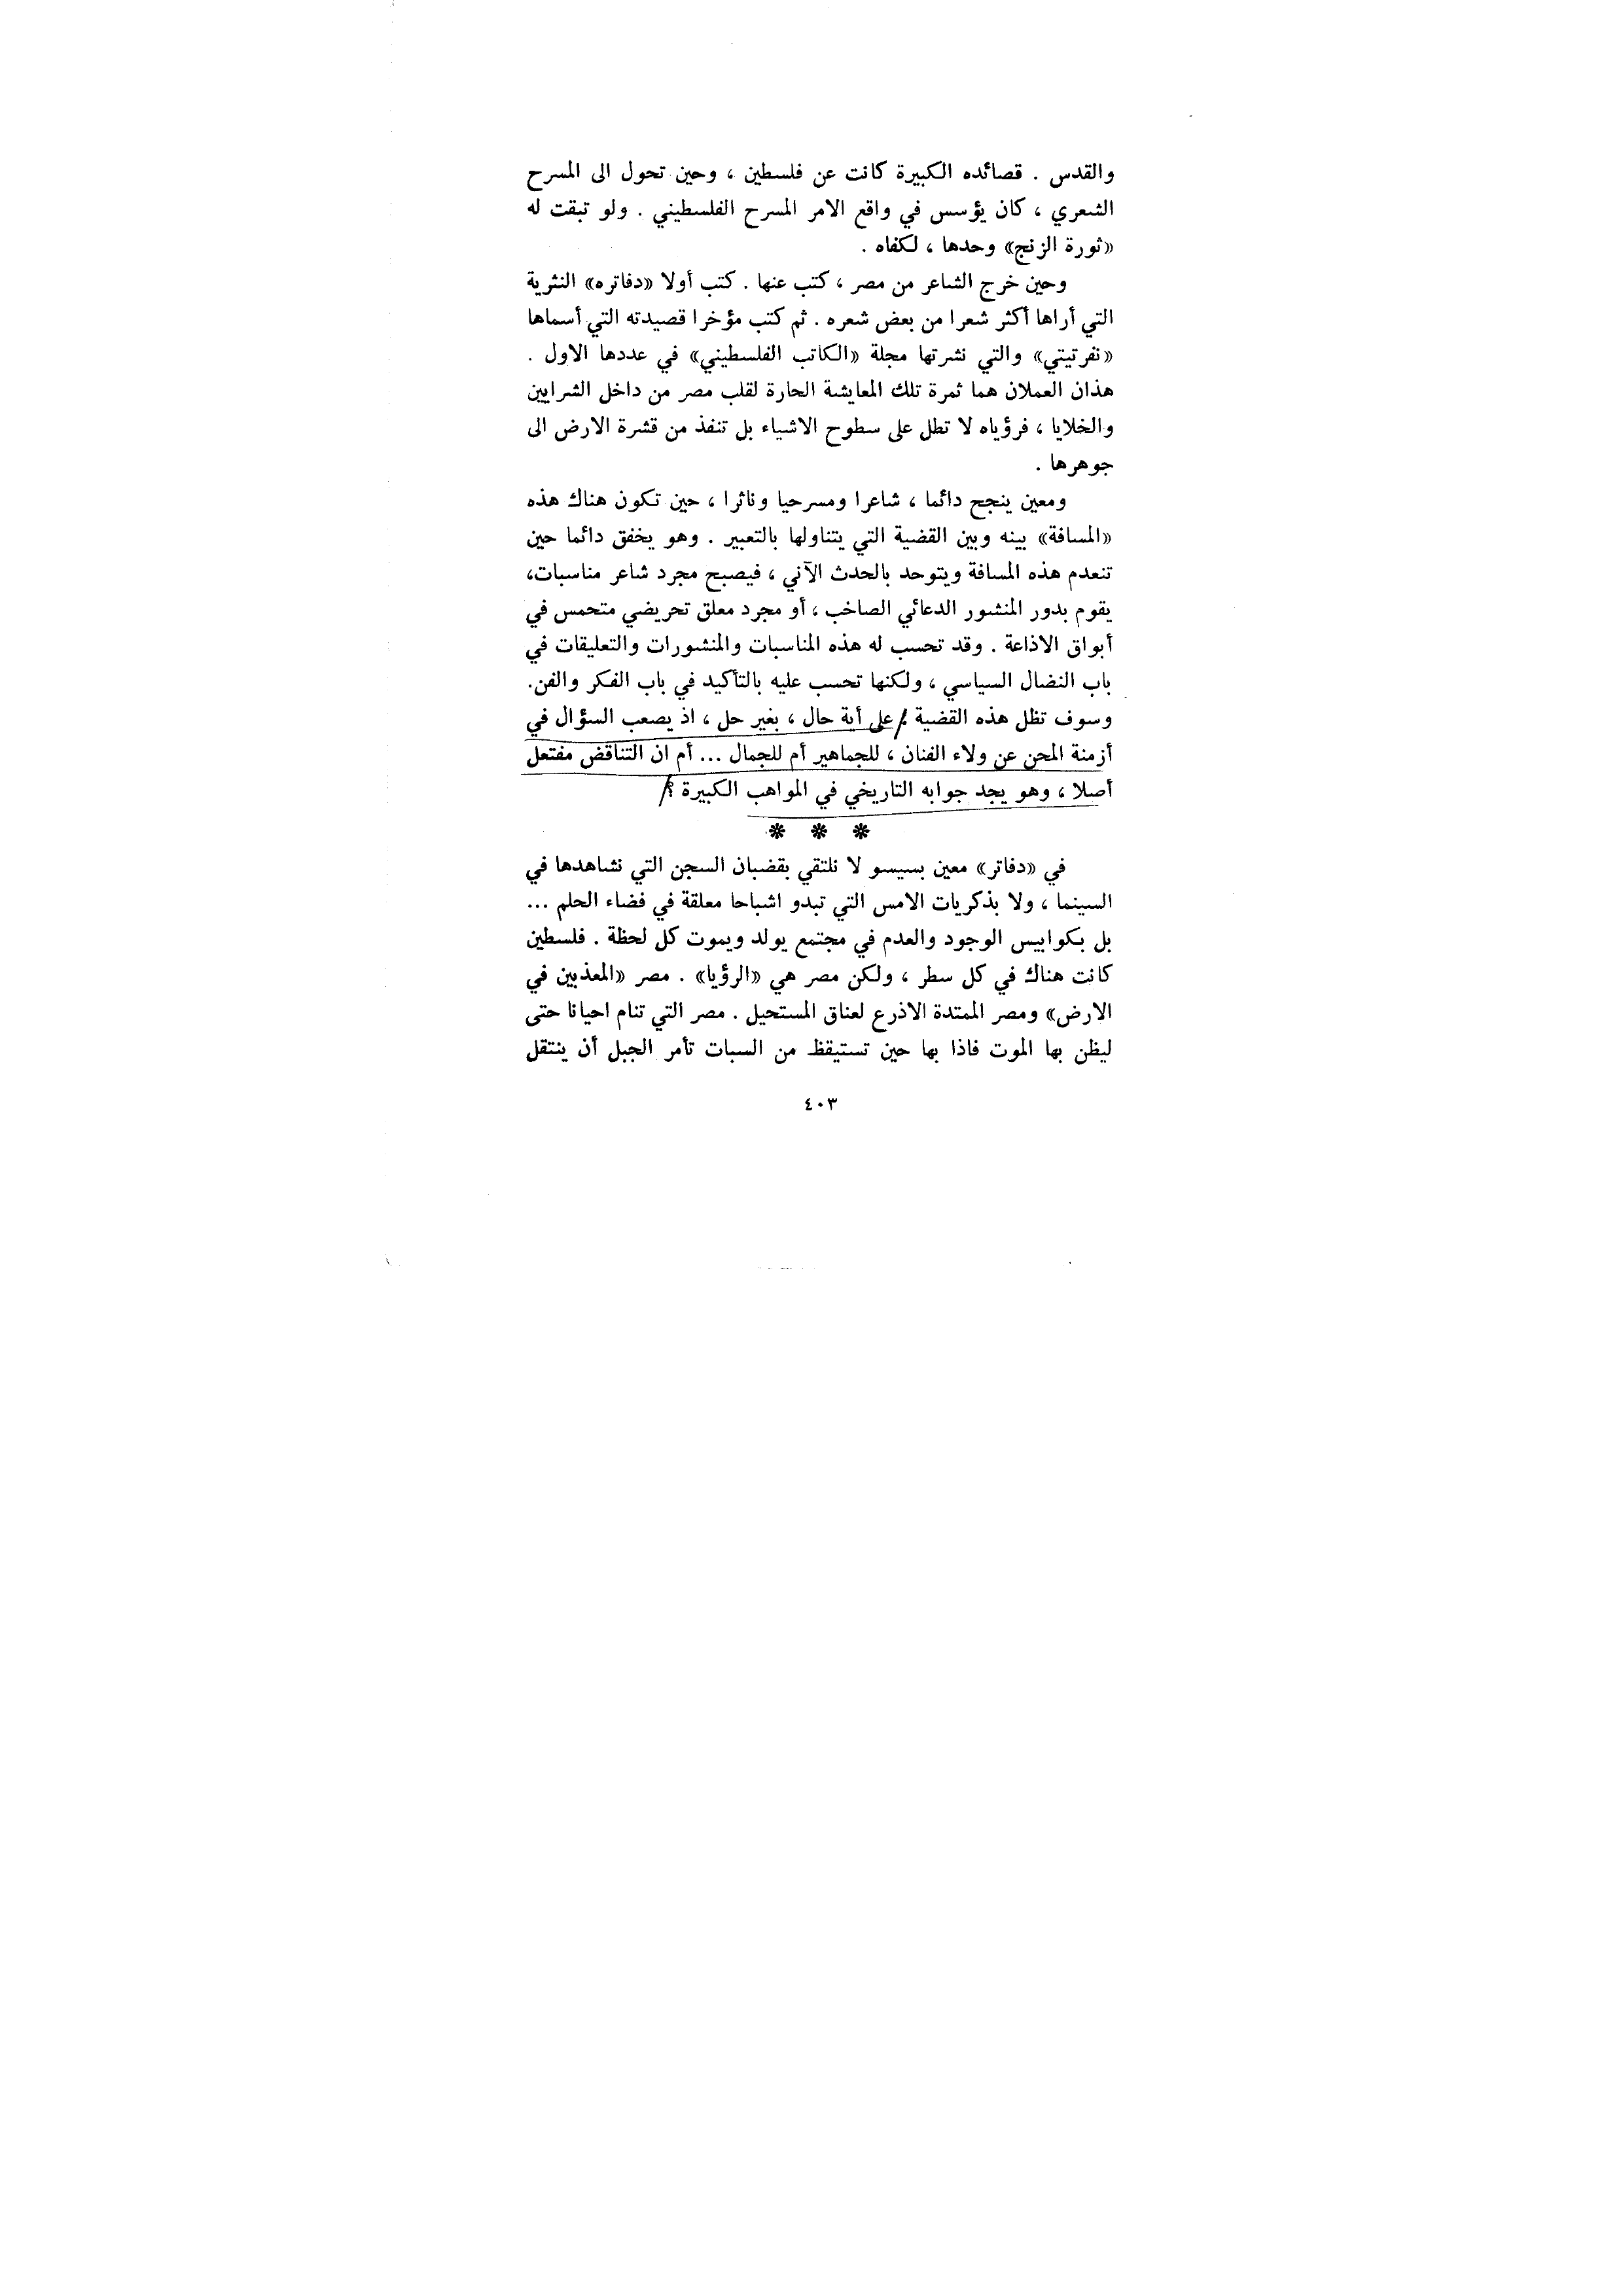 والقدس . قصائده الكبيرة كانت عن فلسطين ، وحين تحول الى المسرح
الشعري ، كان يؤسس في واقع الامر المسرح الفلسطيني . ولو تبقت له
«ثورة الزنج» وحدها ، لكفاه .
وحين خرج الشاعر من مصر ، كتب عنها . كتب أولا «دفاتره» النثرية
التي أراها أكثر شعرا من بعض شعره . ثم كتب مؤخرا قصيدته التي أسماها
«نفرتيتي» والتي نشرتها مجلة «الكاتب الفلسطيني» في عددها الاول .
هذان العملان هما ثمرة تلك المعايشة الحارة لقلب مصر من داخل الشرايين
والخلايا ، فرؤياه لا تطل على سطوح الاشياء بل تنفذ من قشرة الارض الى
جوهرها .
ومعين ينجح دائما ، شاعرا ومسرحيا وناثرا ، حين تكون هناك هذه
«المسافة» بينه وبين القضية التي يتناولها بالتعبير . وهو يخفق دائما حين
تنعدم هذه المسافة ويتوحد بالحدث الآني ، فيصبح مجرد شاعر مناسبات،
يقوم بدور المنشور الدعائي الصاخب ، أو مجرد معلق تحريضي متحمس في
أبواق الاذاعة . وقد تحسب له هذه المناسبات والمنشورات والتعليقات في
باب النضال السياسي ، ولكنها تحسب عليه بالتأكيد في باب الفكر والفن.
وسوف تظل هذه القضية ، على أية حال ، بغير حل ، اذ يصعب السؤال في
أزمنة المحن عن ولاء الفنان ، للجماهير أم للجمال ... أم ان التناقض مفتعل
أصلا ، وهو يجد جوابه التاريخي في المواهب الكبيرة ؟
* * *
في «دفاتر» معين بسيسو لا نلتقي بقضبان السجن التي نشاهدها في
السينما ، ولا بذكريات الامس التي تبدو اشباحا معلقة في فضاء الحلم ...
بل بكوابيس الوجود والعدم في مجتمع يولد ويموت كل لحظة . فلسطين
كانت هناك في كل سطر ، ولكن مصر هي «الرؤيا» . مصر «المعذبين في
الارض» ومصر الممتدة الاذرع لعناق المستحيل . مصر التي تنام احيانا حتى
ليظن بها الموت فاذا بها حين تستيقظ من السبات تأمر الجبل أن ينتقل
٤٠٣